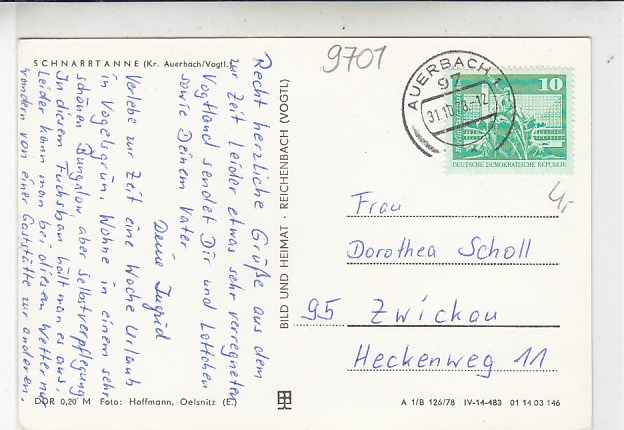 SCHNARRTANNE (Kr. Auerbach/Vogtl.)
9701
AUERBACH 1
97
31.10.78-12
10
DEUTSCHE DEMOKRATISCHE REPUBLIK
4,-
Recht herzliche Grüße aus dem
zur Zeit leider etwas sehr verregneten
Vogtland sendet Dir und Lottchen
sowie Deinem Vater
Deine Ingrid
Verlebe zur Zeit eine Woche Urlaub
in Vogelsgrün. Wohne in einem sehr
schönen Bungalow aber Selbstverpflegung
In diesem Fuchsbau hält man es aus,
Leider kann man bei diesem Wetter nur
wandern von einer Gaststätte zur anderen.
BILD UND HEIMAT · REICHENBACH (VOGTL)
Frau
Dorothea Scholl
95 Zwickau
Heckenweg 11
DDR 0,20 M Foto: Hoffmann, Oelsnitz (E.)
A 1/B 126/78 IV-14-483 01 14 03 146